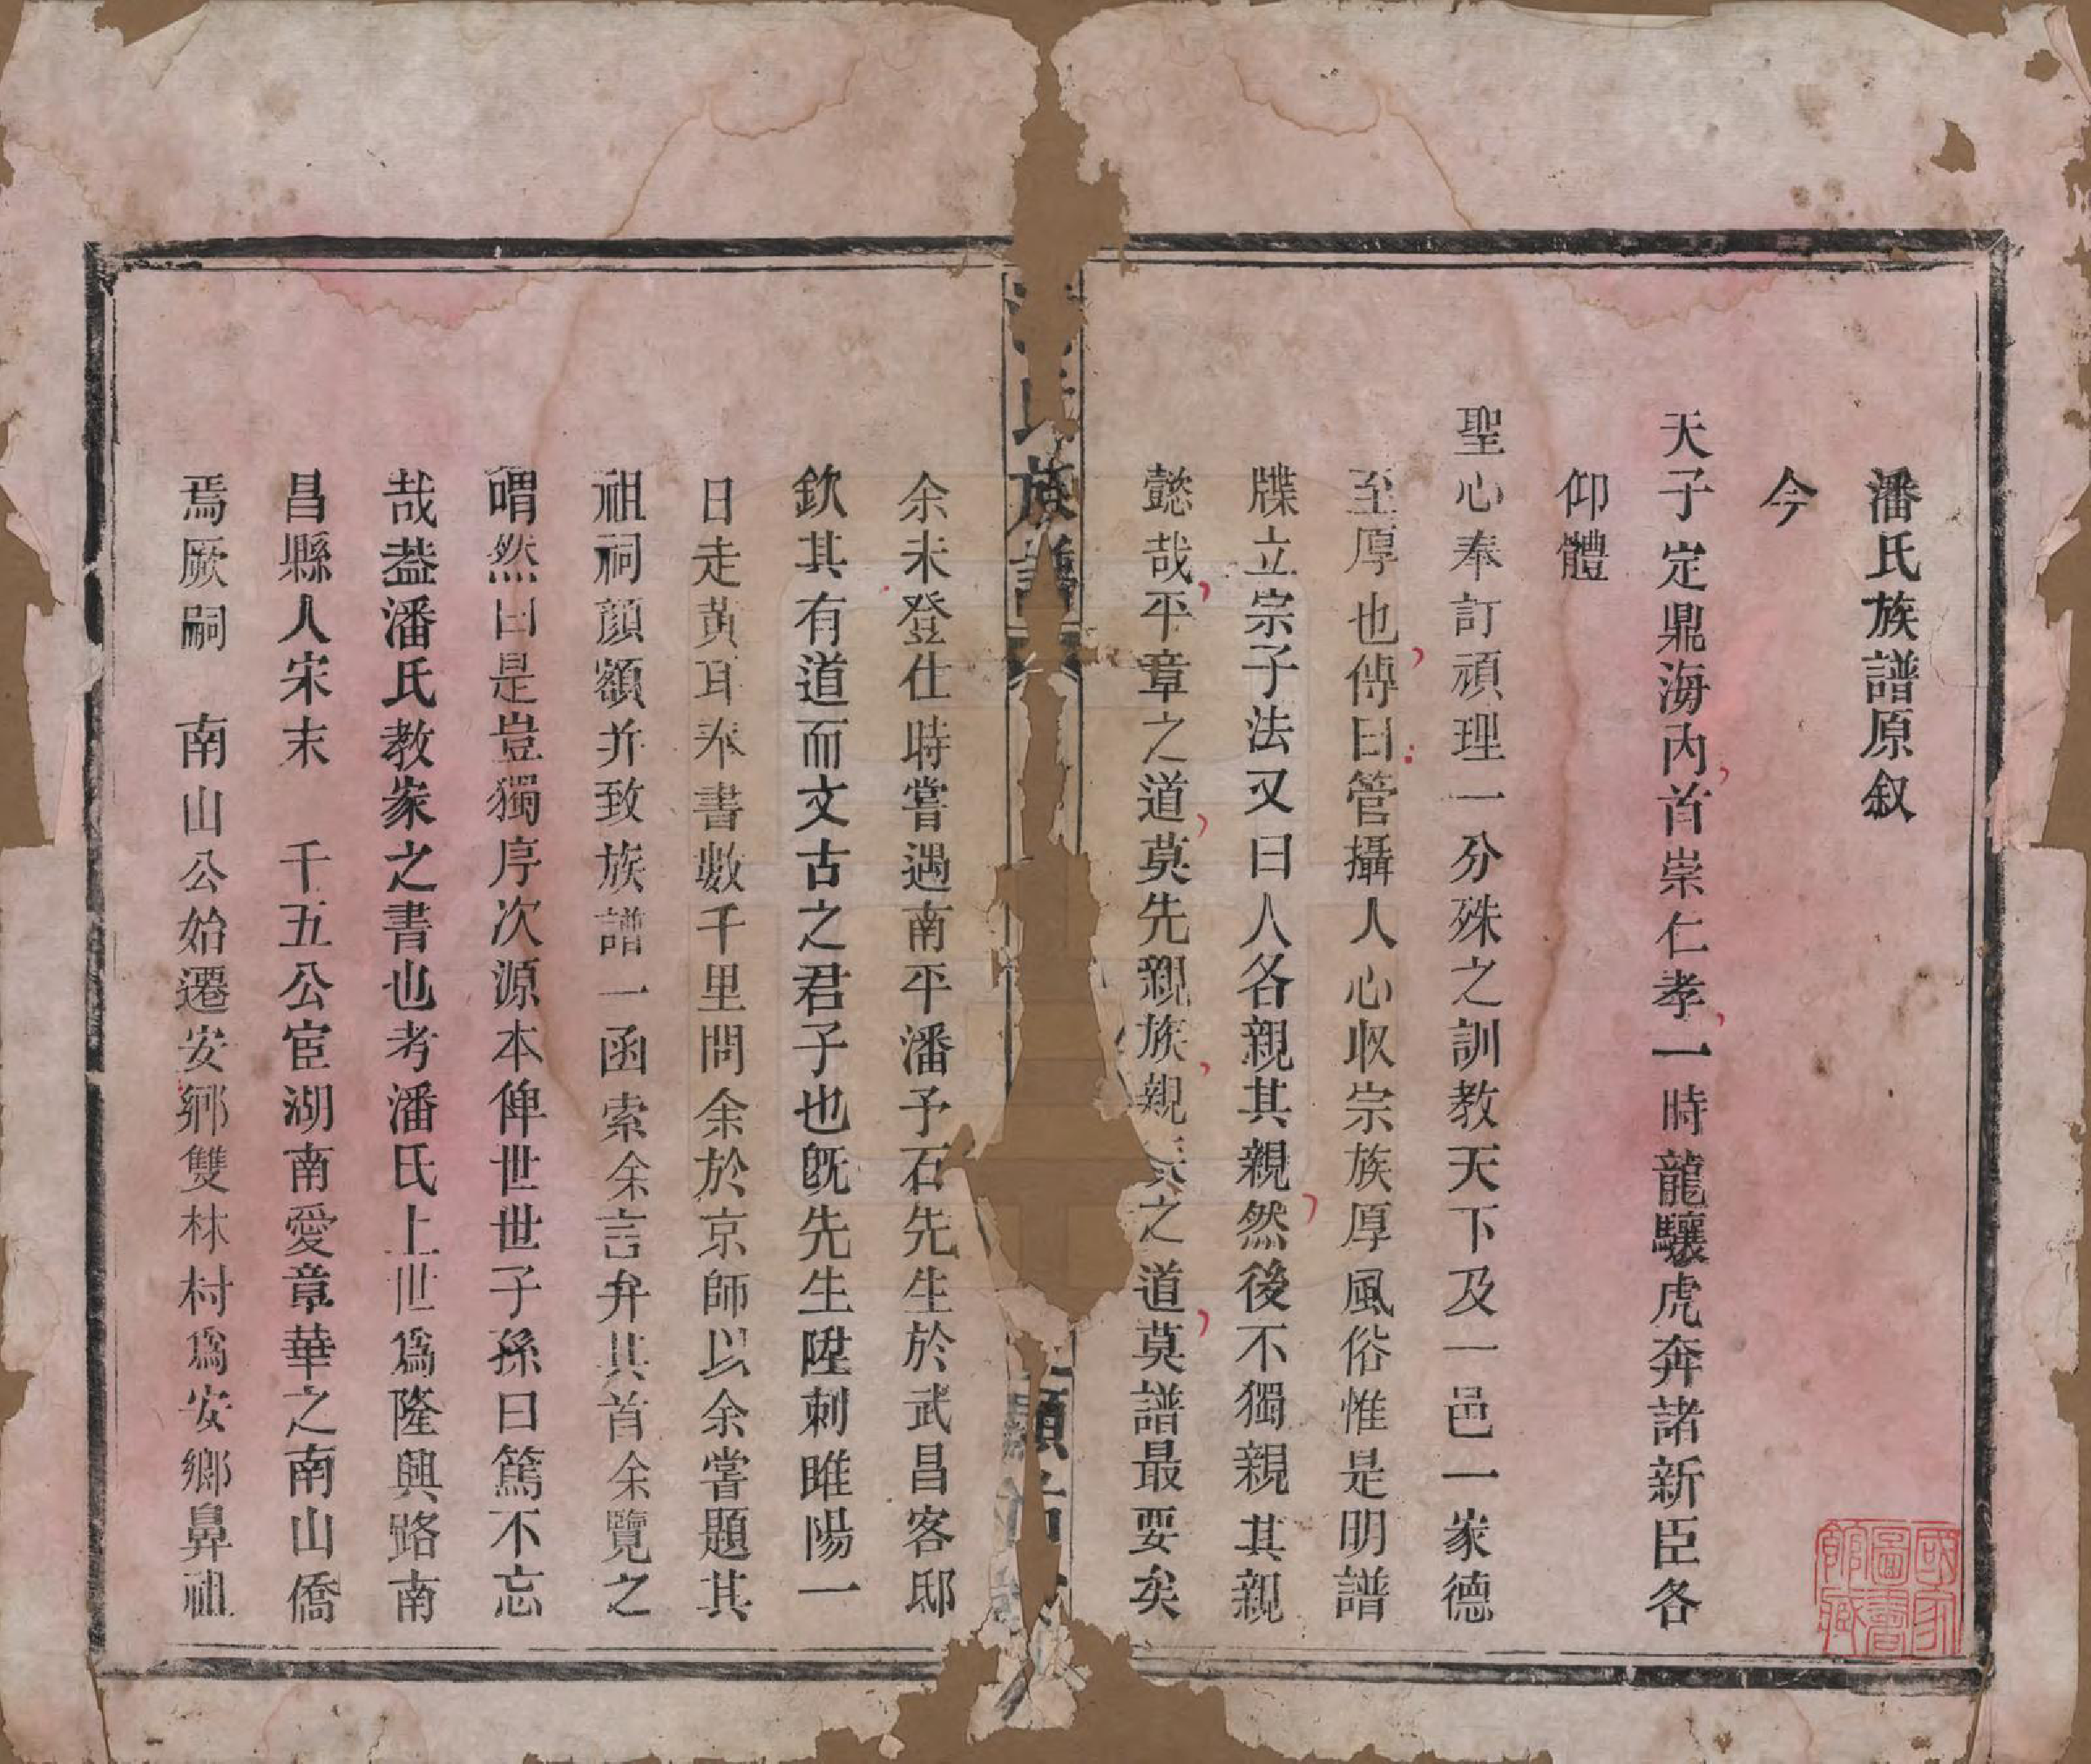 潘氏族譜原叙
今
天子定鼎海內首崇仁孝一時龍驤虎奔諸新臣各
仰體
聖心奉訂頑理一分殊之訓教天下及一邑一家德
至厚也傳曰管攝人心收宗族厚風俗惟是明譜
牒立宗子法又曰人各親其親然後不獨親其親
懿哉平章之道莫先親族親族之道莫譜最要矣
氏族譜
余未登仕時嘗遇南平潘予石先生於武昌客邸
欽其有道而文古之君子也旣先生陞刺睢陽一
日走黃耳奉書數千里問余於京師以余嘗題其
祖祠顏額并致族譜一函索余言弁其首余覽之
喟然曰是豈獨序次源本俾世世子孫曰篤不忘
哉葢潘氏教家之書也考潘氏上世爲隆興路南
昌縣人宋末 千五公宦湖南愛章華之南山僑
焉厥嗣 南山公始遷安鄉雙林村爲安鄉鼻祖
國家圖書館藏